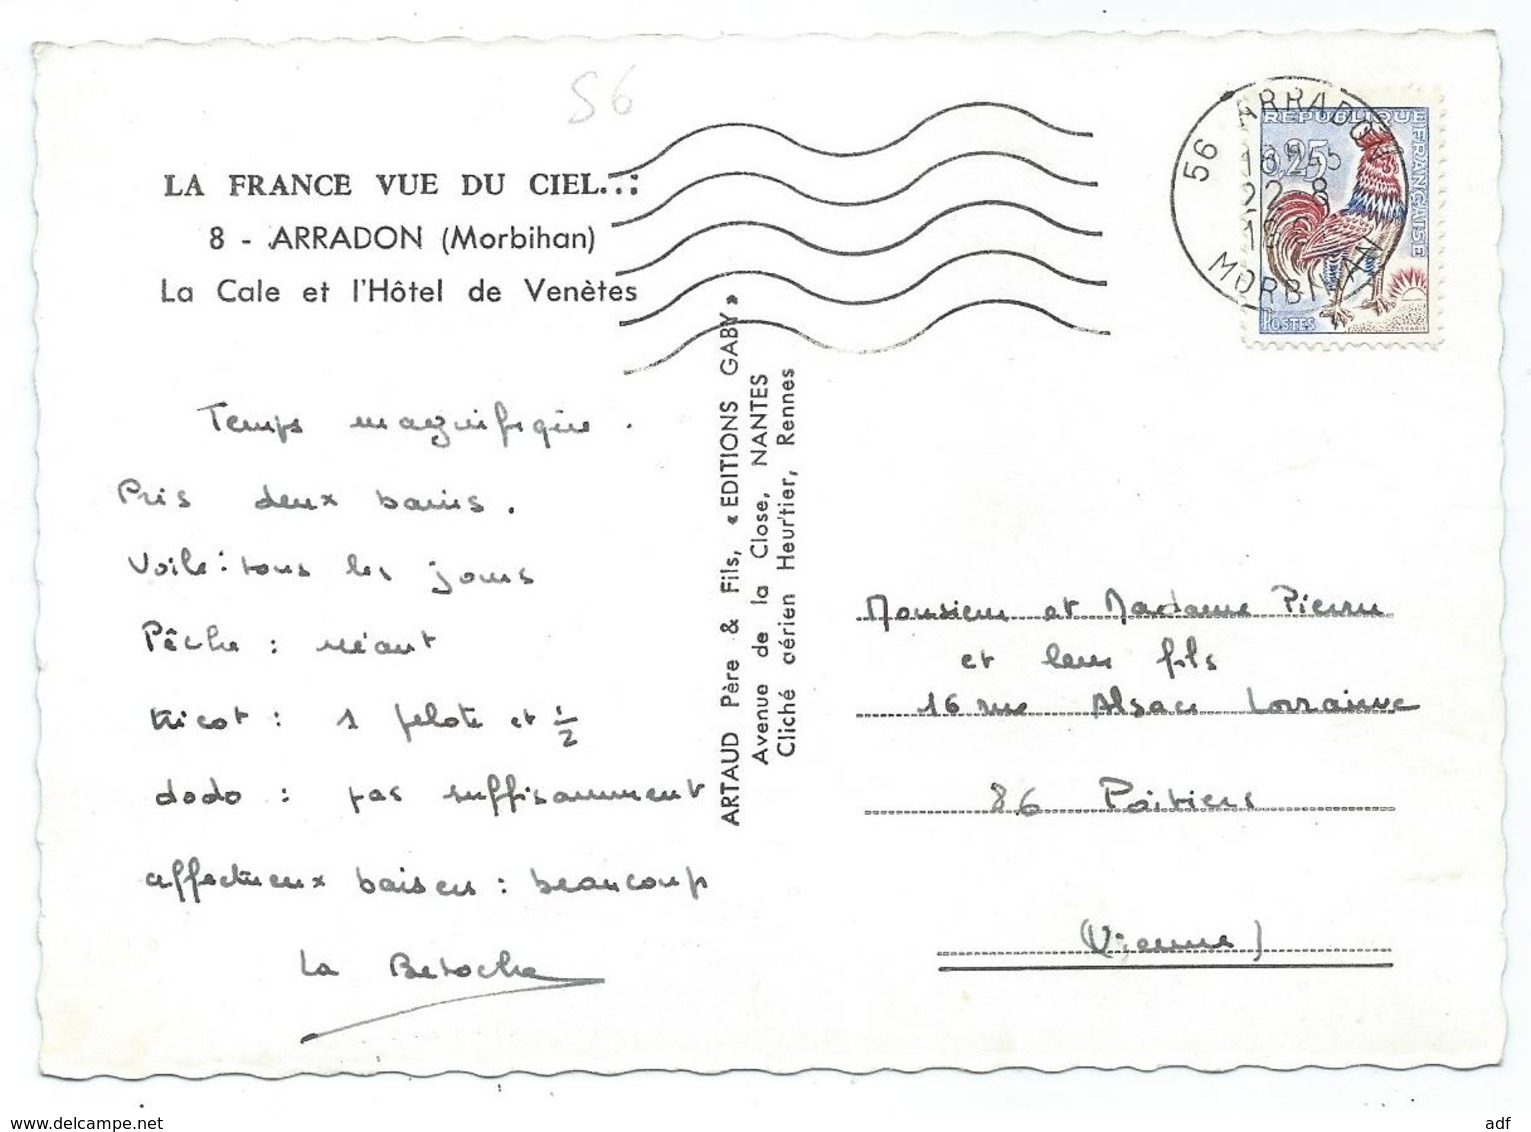 56
LA FRANCE VUE DU CIEL...
8 - ARRADON (Morbihan)
La Cale et l'Hôtel de Venètes
Temps magnifique.
Pris deux bains.
Voile : tous les jours
Pêche : néant
tricot : 1 pelote et 1/2
dodo : pas suffisamment
affectueux baisers : beaucoup
La Betoche
ARTAUD Père & Fils, « EDITIONS GABY »
Avenue de la Close, NANTES
Cliché aérien Heurtier, Rennes
56 ARRADON
22 8
MORBIHAN
REPUBLIQUE FRANÇAISE
0,25
POSTES
Monsieur et Madame Pierre
et leur fils
16 rue Alsace Lorraine
86 Poitiers
(Vienne)
www.delcampe.net
adf